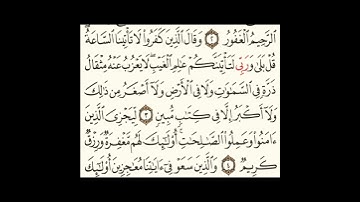 ٱلرَّحِيمُ ٱلْغَفُورُ ٢ وَقَالَ ٱلَّذِينَ كَفَرُوا۟ لَا تَأْتِينَا ٱلسَّاعَةُ
قُلْ بَلَىٰ وَرَبِّى لَتَأْتِيَنَّكُمْ عَـٰلِمِ ٱلْغَيْبِ لَا يَعْزُبُ عَنْهُ مِثْقَالُ
ذَرَّةٍ فِى ٱلسَّمَـٰوَٰتِ وَلَا فِى ٱلْأَرْضِ وَلَآ أَصْغَرُ مِن ذَٰلِكَ
وَلَآ أَكْبَرُ إِلَّا فِى كِتَـٰبٍ مُّبِينٍ ٣ لِّيَجْزِىَ ٱلَّذِينَ
ءَامَنُوا۟ وَعَمِلُوا۟ ٱلصَّـٰلِحَـٰتِ أُو۟لَـٰٓئِكَ لَهُم مَّغْفِرَةٌ وَرِزْقٌ
كَرِيمٌ ٤ وَٱلَّذِينَ سَعَوْ فِىٓ ءَايَـٰتِنَا مُعَـٰجِزِينَ أُو۟لَـٰٓئِكَ